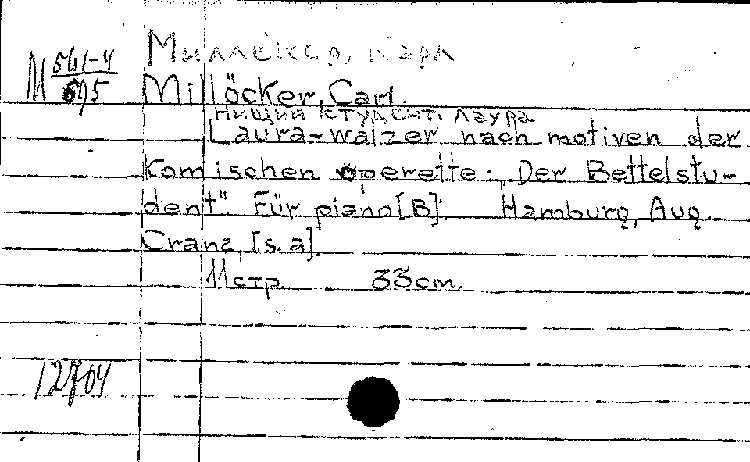 Миллёкер, Карл
М 561-4
695
Millöcker, Carl.
Нищий студент. Лаура
Laura-walzer nach motiven der
Komischen operette: „Der Bettelstu-
dent". Für piano [B]. Hamburg, Aug.
Cranz, [s. a].
11 стр. 33 cm.
12704